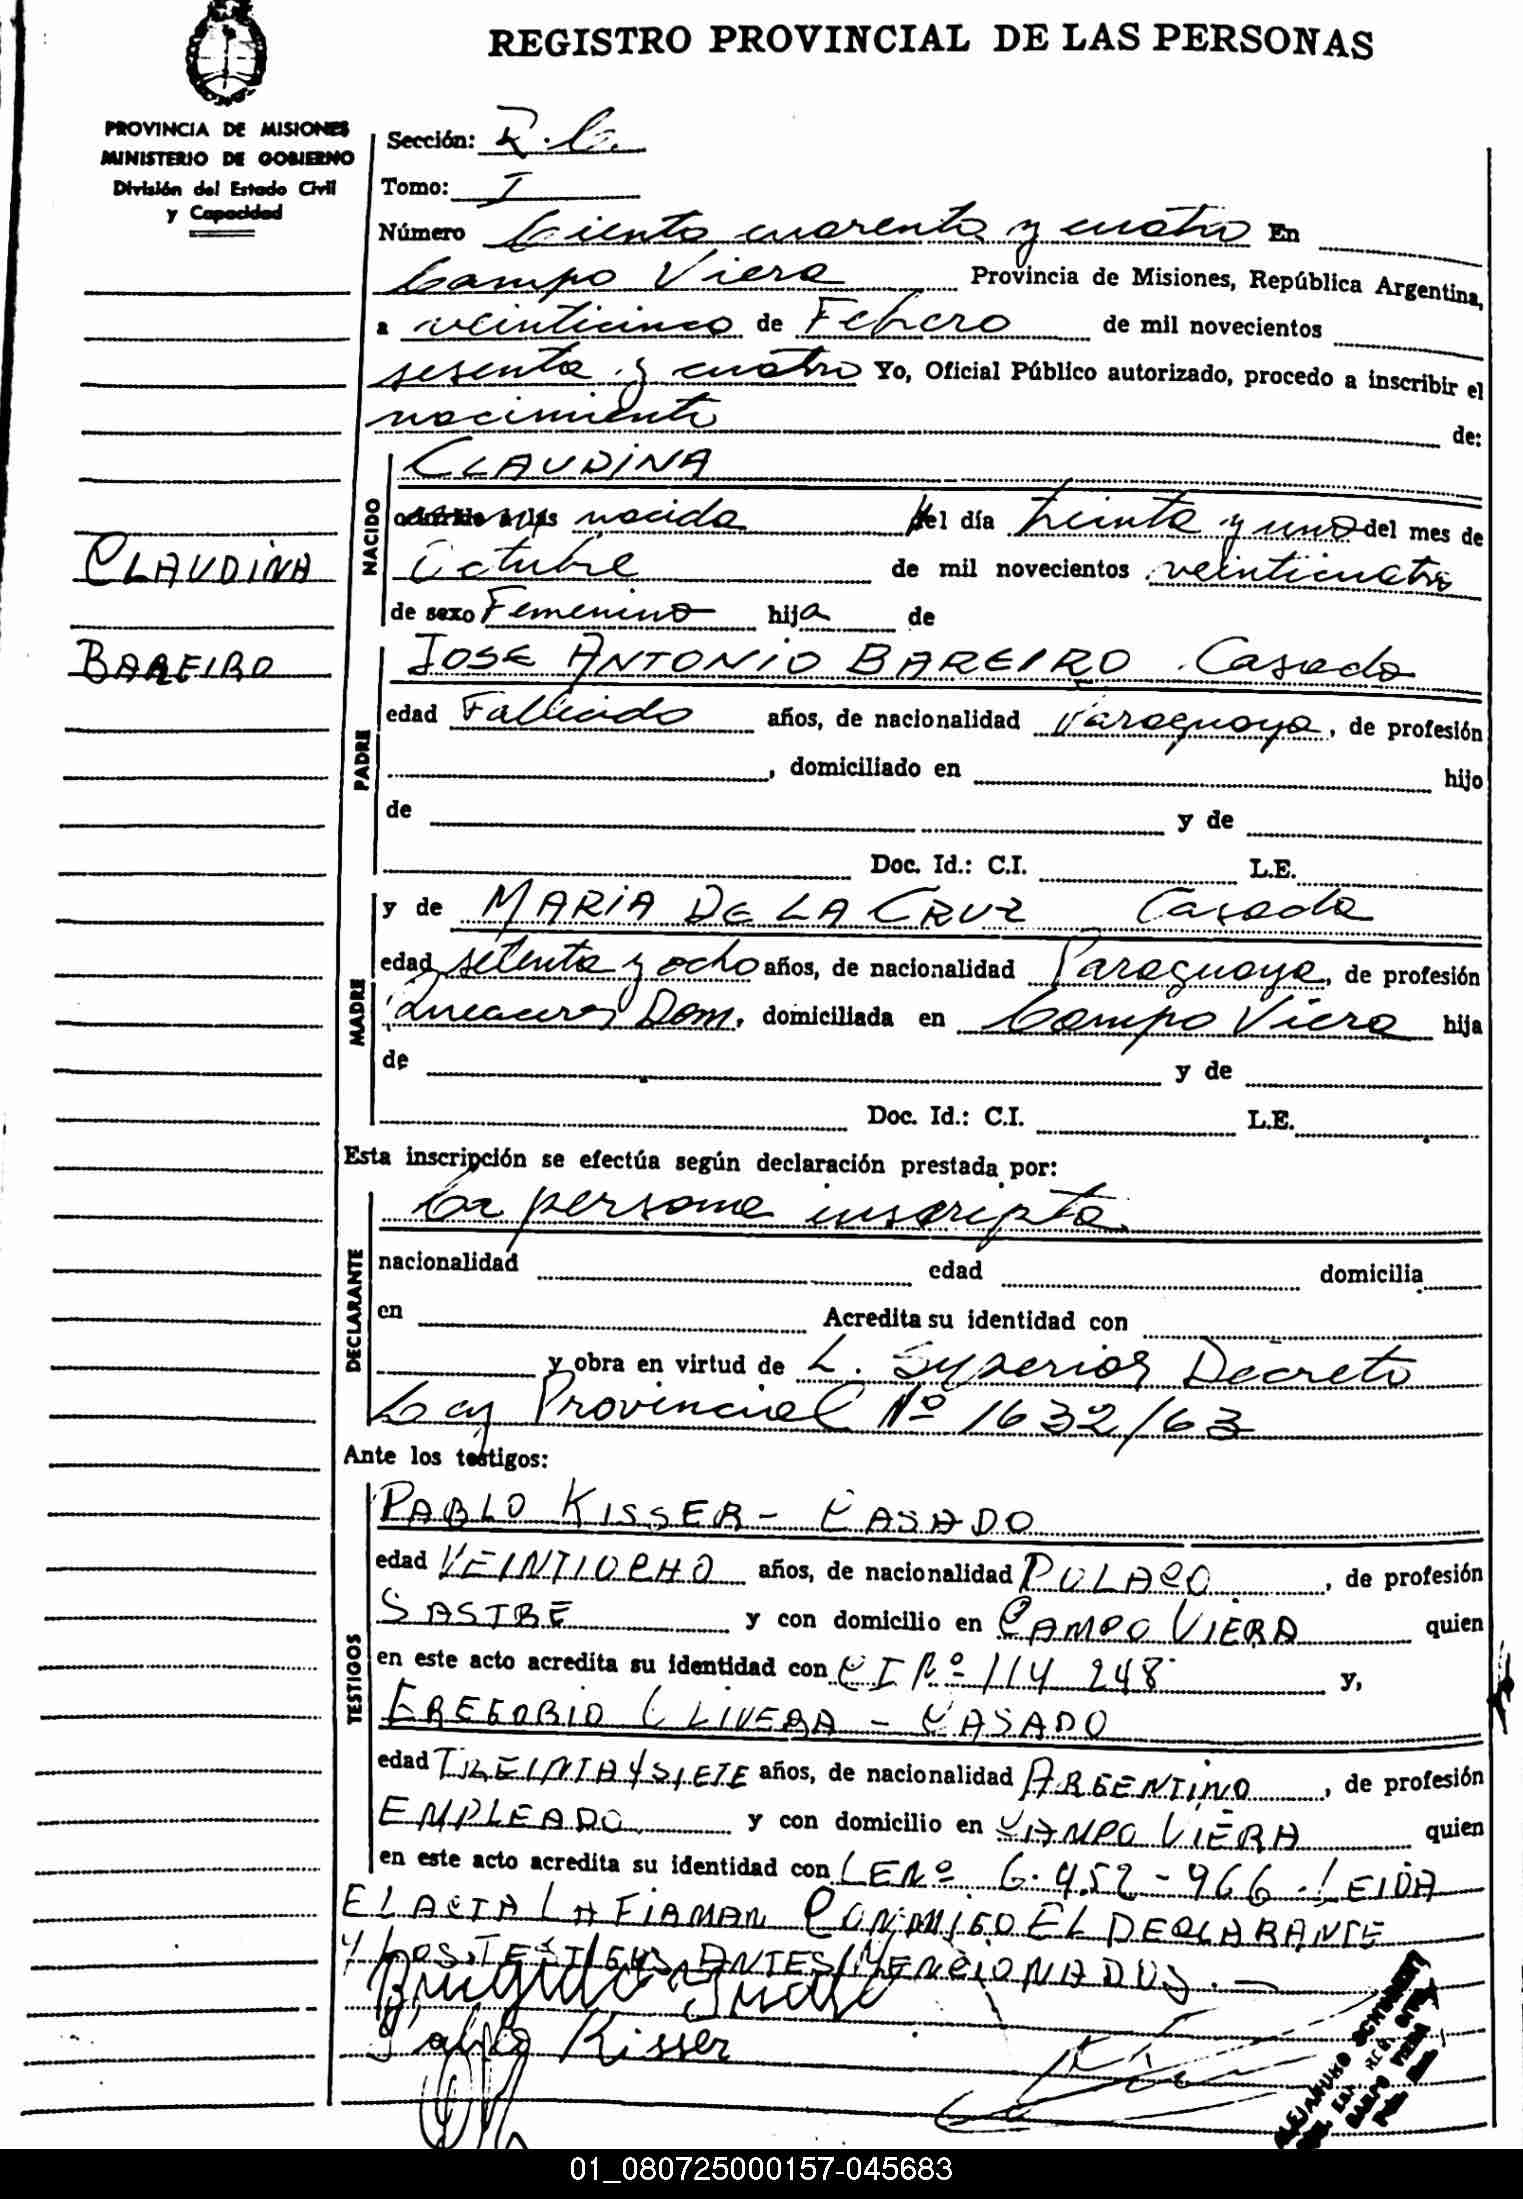 REGISTRO PROVINCIAL DE LAS PERSONAS
PROVINCIA DE MISIONES
MINISTERIO DE GOBIERNO
División del Estado Civil
y Capacidad
CLAUDINA
BAREIRO
Sección: R.C.
Tomo: I
Número Ciento cuarenta y cuatro En
Campo Viera Provincia de Misiones, República Argentina,
a veinticinco de Febrero de mil novecientos
sesenta y cuatro Yo, Oficial Público autorizado, procedo a inscribir el
nacimiento de:
NACIDO
CLAUDINA
ocurrido a las nacida del día treinta y uno del mes de
Octubre de mil novecientos veinticuatro
de sexo Femenino hija de
PADRE
JOSE ANTONIO BAREIRO Casado
edad Fallecido años, de nacionalidad Paraguaya, de profesión
, domiciliado en hijo
de y de
Doc. Id.: C.I. L.E.
MADRE
y de MARIA DE LA CRUZ Casada
edad setenta y ocho años, de nacionalidad Paraguaya, de profesión
Quehaceres Dom, domiciliada en Campo Viera hija
de y de
Doc. Id.: C.I. L.E.
Esta inscripción se efectúa según declaración prestada por:
DECLARANTE
La persona inscripta
nacionalidad edad domicilia
en Acredita su identidad con
y obra en virtud de L. Superior Decreto
Ley Provincial Nº 1632/63
Ante los testigos:
TESTIGOS
PABLO KISSER - CASADO
edad VEINTIOCHO años, de nacionalidad POLACO, de profesión
SASTRE y con domicilio en CAMPO VIERA quien
en este acto acredita su identidad con CI Nº 114 248 y,
GREGORIO OLIVERA - CASADO
edad TREINTA Y SIETE años, de nacionalidad ARGENTINO, de profesión
EMPLEADO y con domicilio en CAMPO VIERA quien
en este acto acredita su identidad con LE Nº 6.452-966. LEIDA
EL ACTA LA FIRMAN CONMIGO EL DECLARANTE
Y LOS TESTIGOS ANTES MENCIONADOS.-
Pablo Kisser
01_080725000157-045683